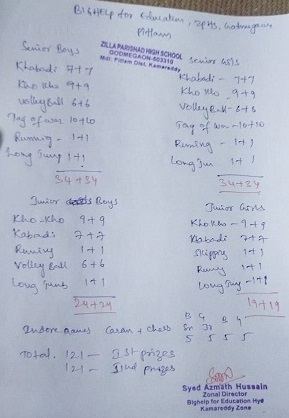 BIGHELP for Education, ZPHS, Godmegaon
Pittam
ZILLA PARISHAD HIGH SCHOOL
GODMEGAON-503310
Mdl: Pitlam Dist. Kamareddy
Senior Boys
Khabadi 7+7
Kho Kho 9+9
Volley Ball 6+6
Tag of war - 10+10
Running - 1+1
Long Jump 1+1
34+34
Senior Girls
Khabadi - 7+7
Kho Kho - 9+9
Volley Ball - 6+6
Tag of war - 10+10
Runing - 1+1
Long Jum 1+1
34+34
Junior Boys
Kho-Kho 9+9
Kabadi 7+7
Runing 1+1
Volley Ball 6+6
Long Jump 1+1
24+24
Junior Girls
Kho Kho - 9+9
Kabadi 7+7
Skipping 1+1
Runing 1+1
Long Jup - 1+1
19+19
Indore games Caram + Chess
B G B G
Sr Jr
5 5 5 5
Total. 121 - Ist prizes
121 - IInd prizes
Syed Azmath Hussain
Zonal Director
Bighelp for Education Hyd
Kamareddy Zone